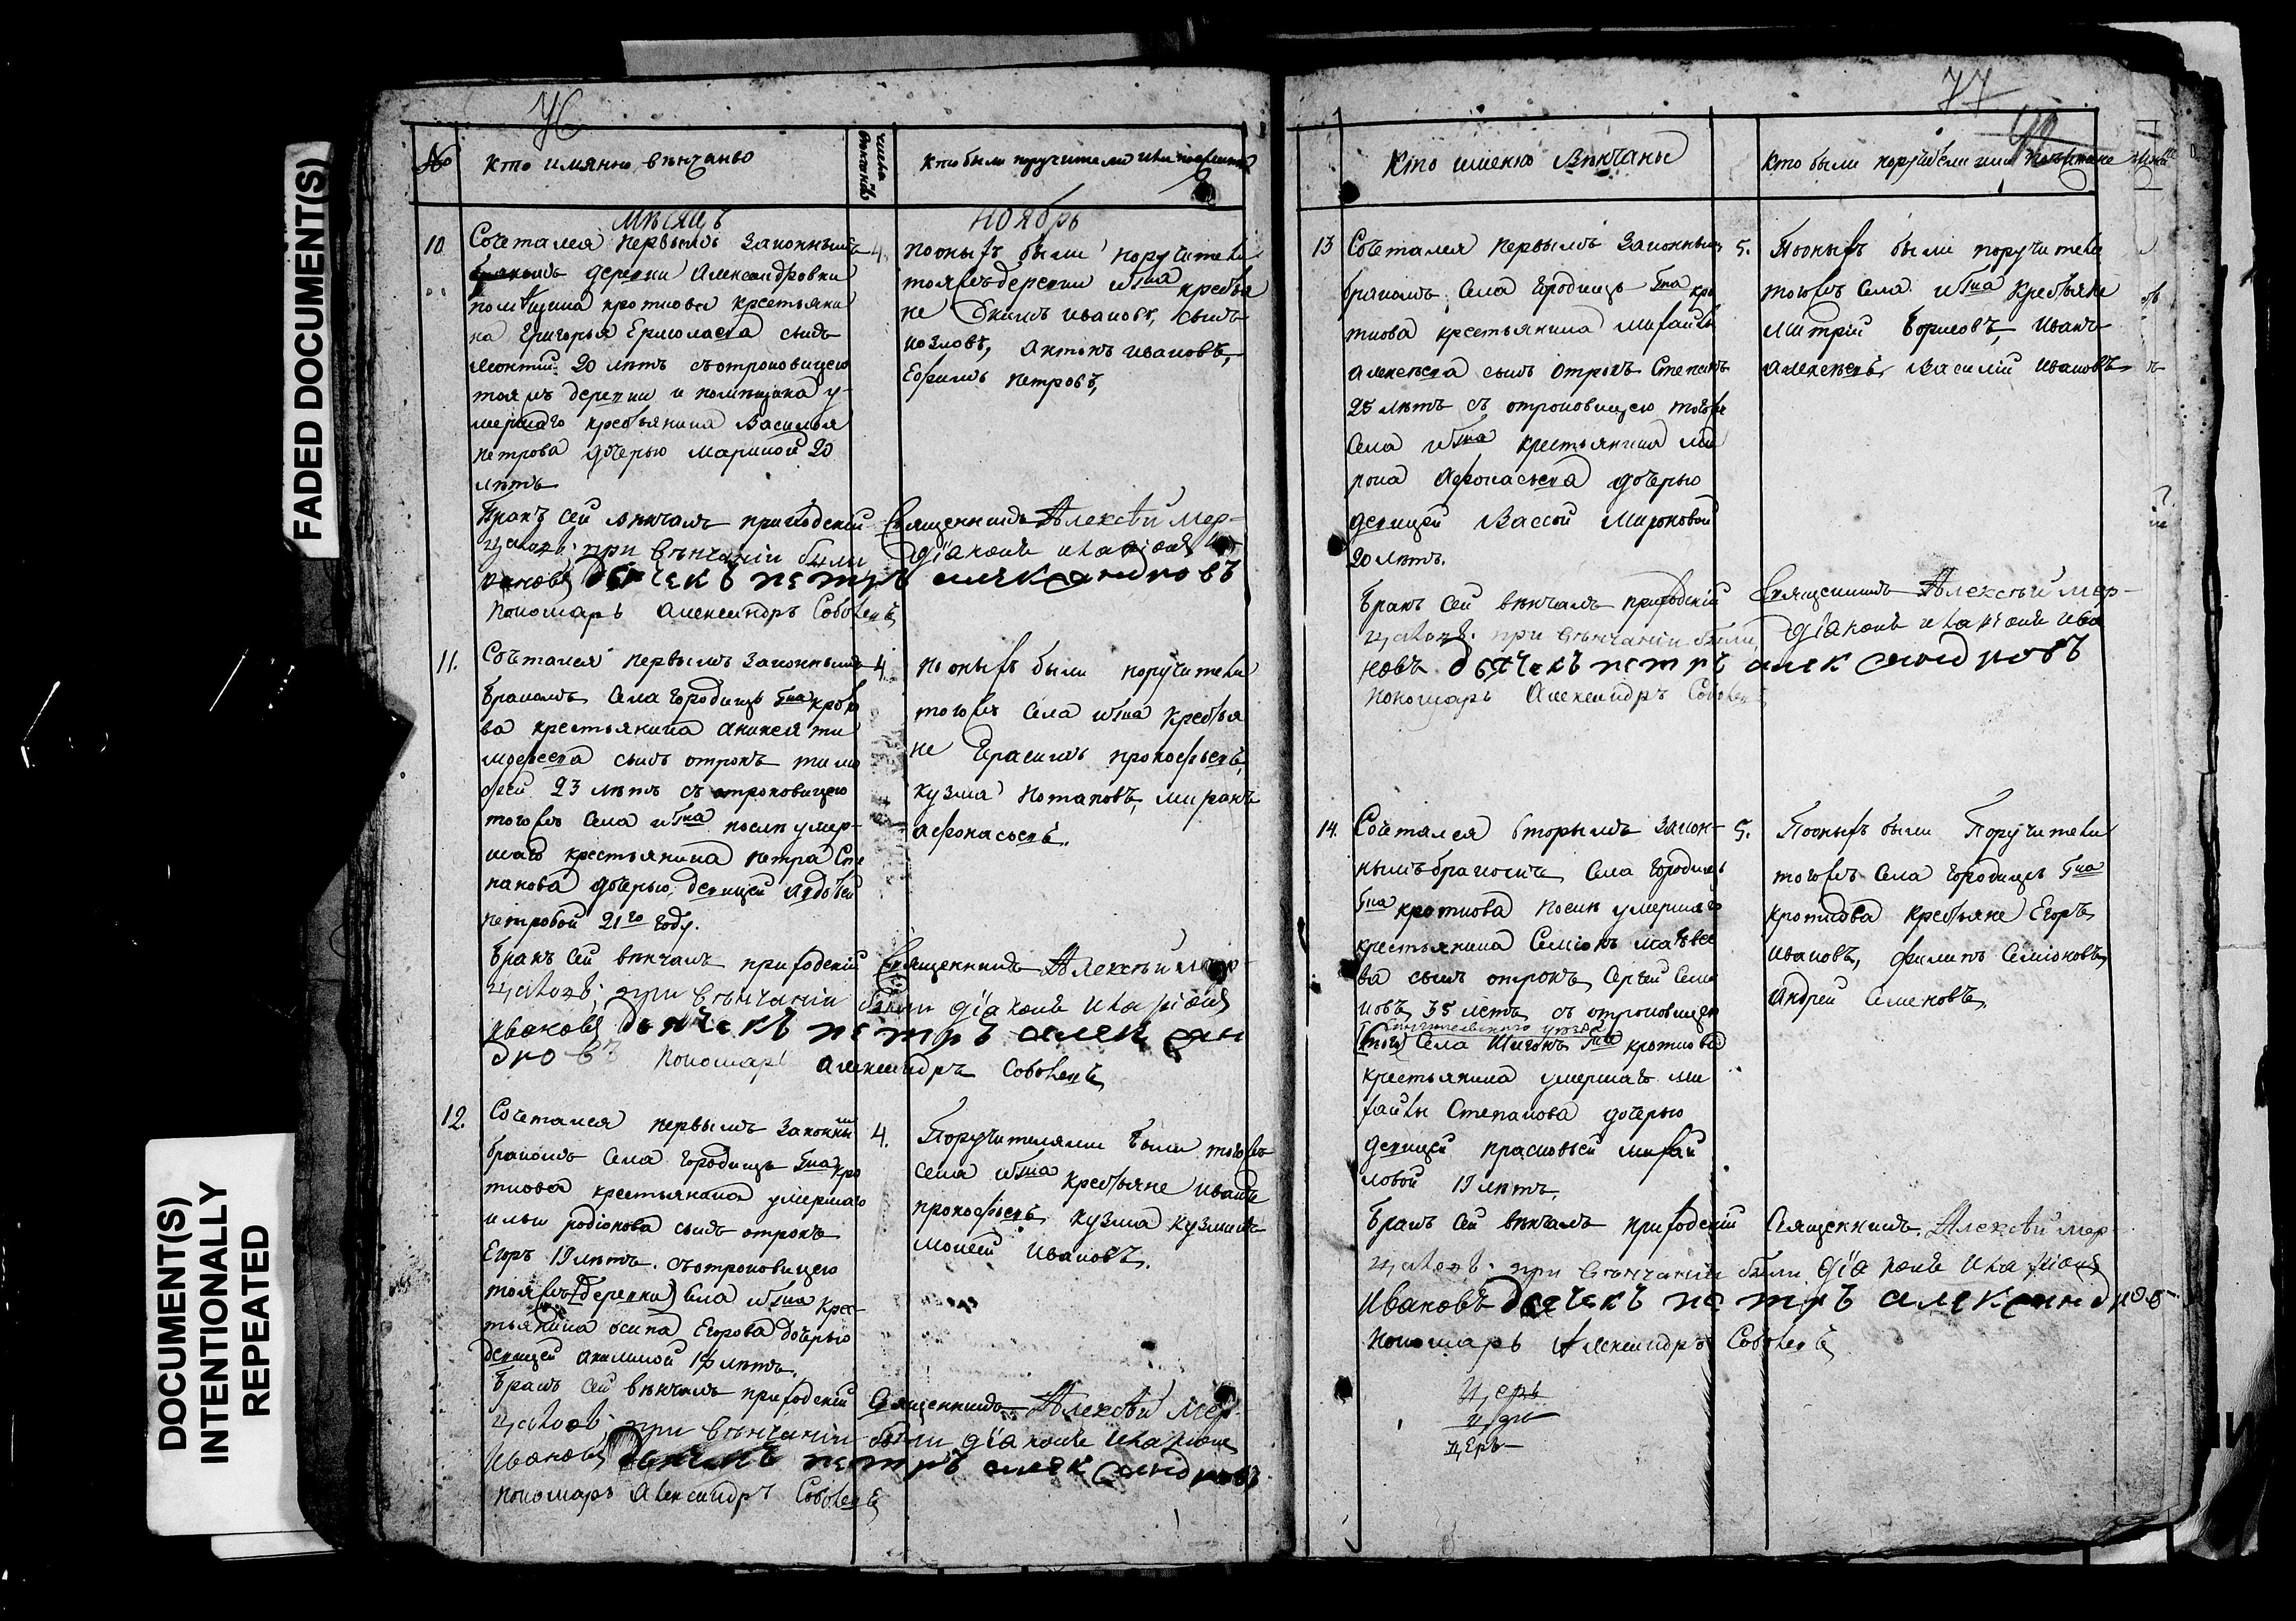 FADED DOCUMENT(S)
DOCUMENT(S)
INTENTIONALLY
REPEATED
№
кто имянно вѣнчаны
числа
кто были пручители или
Мѣсяцъ
ноябрь
10.
Сочетался первымъ законнымъ
бракомъ деревни Александровки
помѣщика кроткова крестьяни
на Григорья Ермолаева сынъ
леонтий 20 лѣтъ съ отроковицею
тояжъ деревни и помѣщика у-
мершаго крестьянина Василья
петрова дочерью мариной 20
лѣтъ
4.
пооныхъ были поручители
тояжъ деревни крестья
не Екимъ ивановъ, сынъ
козловъ, антонъ ивановъ,
Еофимъ петровъ,
Бракъ сей вѣнчалъ приходский Священникъ Алексѣй мер-
цаловъ; при вѣнчании были діаконъ иларіонъ
ивановъ дьячекъ петръ александровъ
пономарь александръ Соболевъ
11.
Сочетался первымъ законнымъ
бракомъ Села городищъ Гна кротко
ва крестьянина аникея ти
мофеева сынъ отрокъ тимо
фей 23 лѣтъ съ отроковицею
тогожъ Села иГна послѣ умер-
шаго крестьянина петра Сте
панова дочерью девицей авдотьей
петровой 21го году.
4.
пооныхъ были поручители
тогожъ села иГна крестья
не Герасимъ прокофьевъ,
кузма потаповъ, миронъ
афонасьевъ.
Бракъ сей вѣнчалъ приходский Священникъ Алексѣй мер-
цаловъ; при вѣнчании были діаконъ иларіонъ
ивановъ дьячекъ петръ алексан
дровъ пономарь александръ Соболевъ
12.
Сочетался первымъ законны
бракомъ Села городищъ Гна кро
ткова крестьянина умершаго
ильи родіонова сынъ отрокъ
Егоръ 19 лѣтъ. съ отроковицею
тояжъ (деревни) Села иГна крес-
тьянина осипа Егорова дочерью
девицей акилиной лѣтъ.
4.
Поручителями были тогожъ
села иГна крестьяне иванъ
прокофьевъ кузма кузминъ
мокей ивановъ.
Бракъ сей вѣнчалъ приходский Священникъ Алексѣй мер-
цаловъ; при вѣнчании были діаконъ иларіонъ
ивановъ дьячекъ петръ александровъ
пономарь александръ Соболевъ
77
кто именно вѣнчаны
кто были поручители или
13
Сочетался первымъ законнымъ
бракомъ Села городищъ Гна кро
ткова крестьянина михайлы
алексѣева сынъ отрокъ Степанъ
25 лѣтъ съ отроковицею тогожъ
Села иГна крестьянина ми
рона афонасьева дочерью
девицей Вассой мироновой
20 лѣтъ.
5.
Пооныхъ были поручители
тогожъ Села иГна крестьяне
митрий борисовъ, иванъ
алексѣевъ, василий ивановъ
Бракъ сей вѣнчалъ приходский Священникъ Алексѣй мер-
цаловъ. при вѣнчании были діаконъ иларіонъ ива
новъ дьячекъ петръ александровъ
пономарь александръ Соболевъ
14.
Сочетался вторымъ закон-
нымъ бракомъ Села городищъ
Гна кроткова послѣ умершаго
крестьянина Семіонъ матвее
ва сынъ отрокъ Сергей Семе
новъ 35 летъ съ отроковицею
уезда
(тогожъ) Села Шигонъ Гна кроткова
крестьянина умершаго ми
хайлы Степанова дочерью
девицей прасковьей михай
ловой 19 лѣтъ.
5.
Пооныхъ были Поручители
тогожъ Села городищъ Гна
кроткова крестьяне Егоръ
ивановъ, филипъ Семіоновъ,
андрей Семеновъ
Бракъ сей вѣнчалъ приходский Священникъ Алексѣй мер-
цаловъ. при вѣнчании были діаконъ иларіонъ
ивановъ дьячекъ петръ александров
пономарь александръ Соболевъ